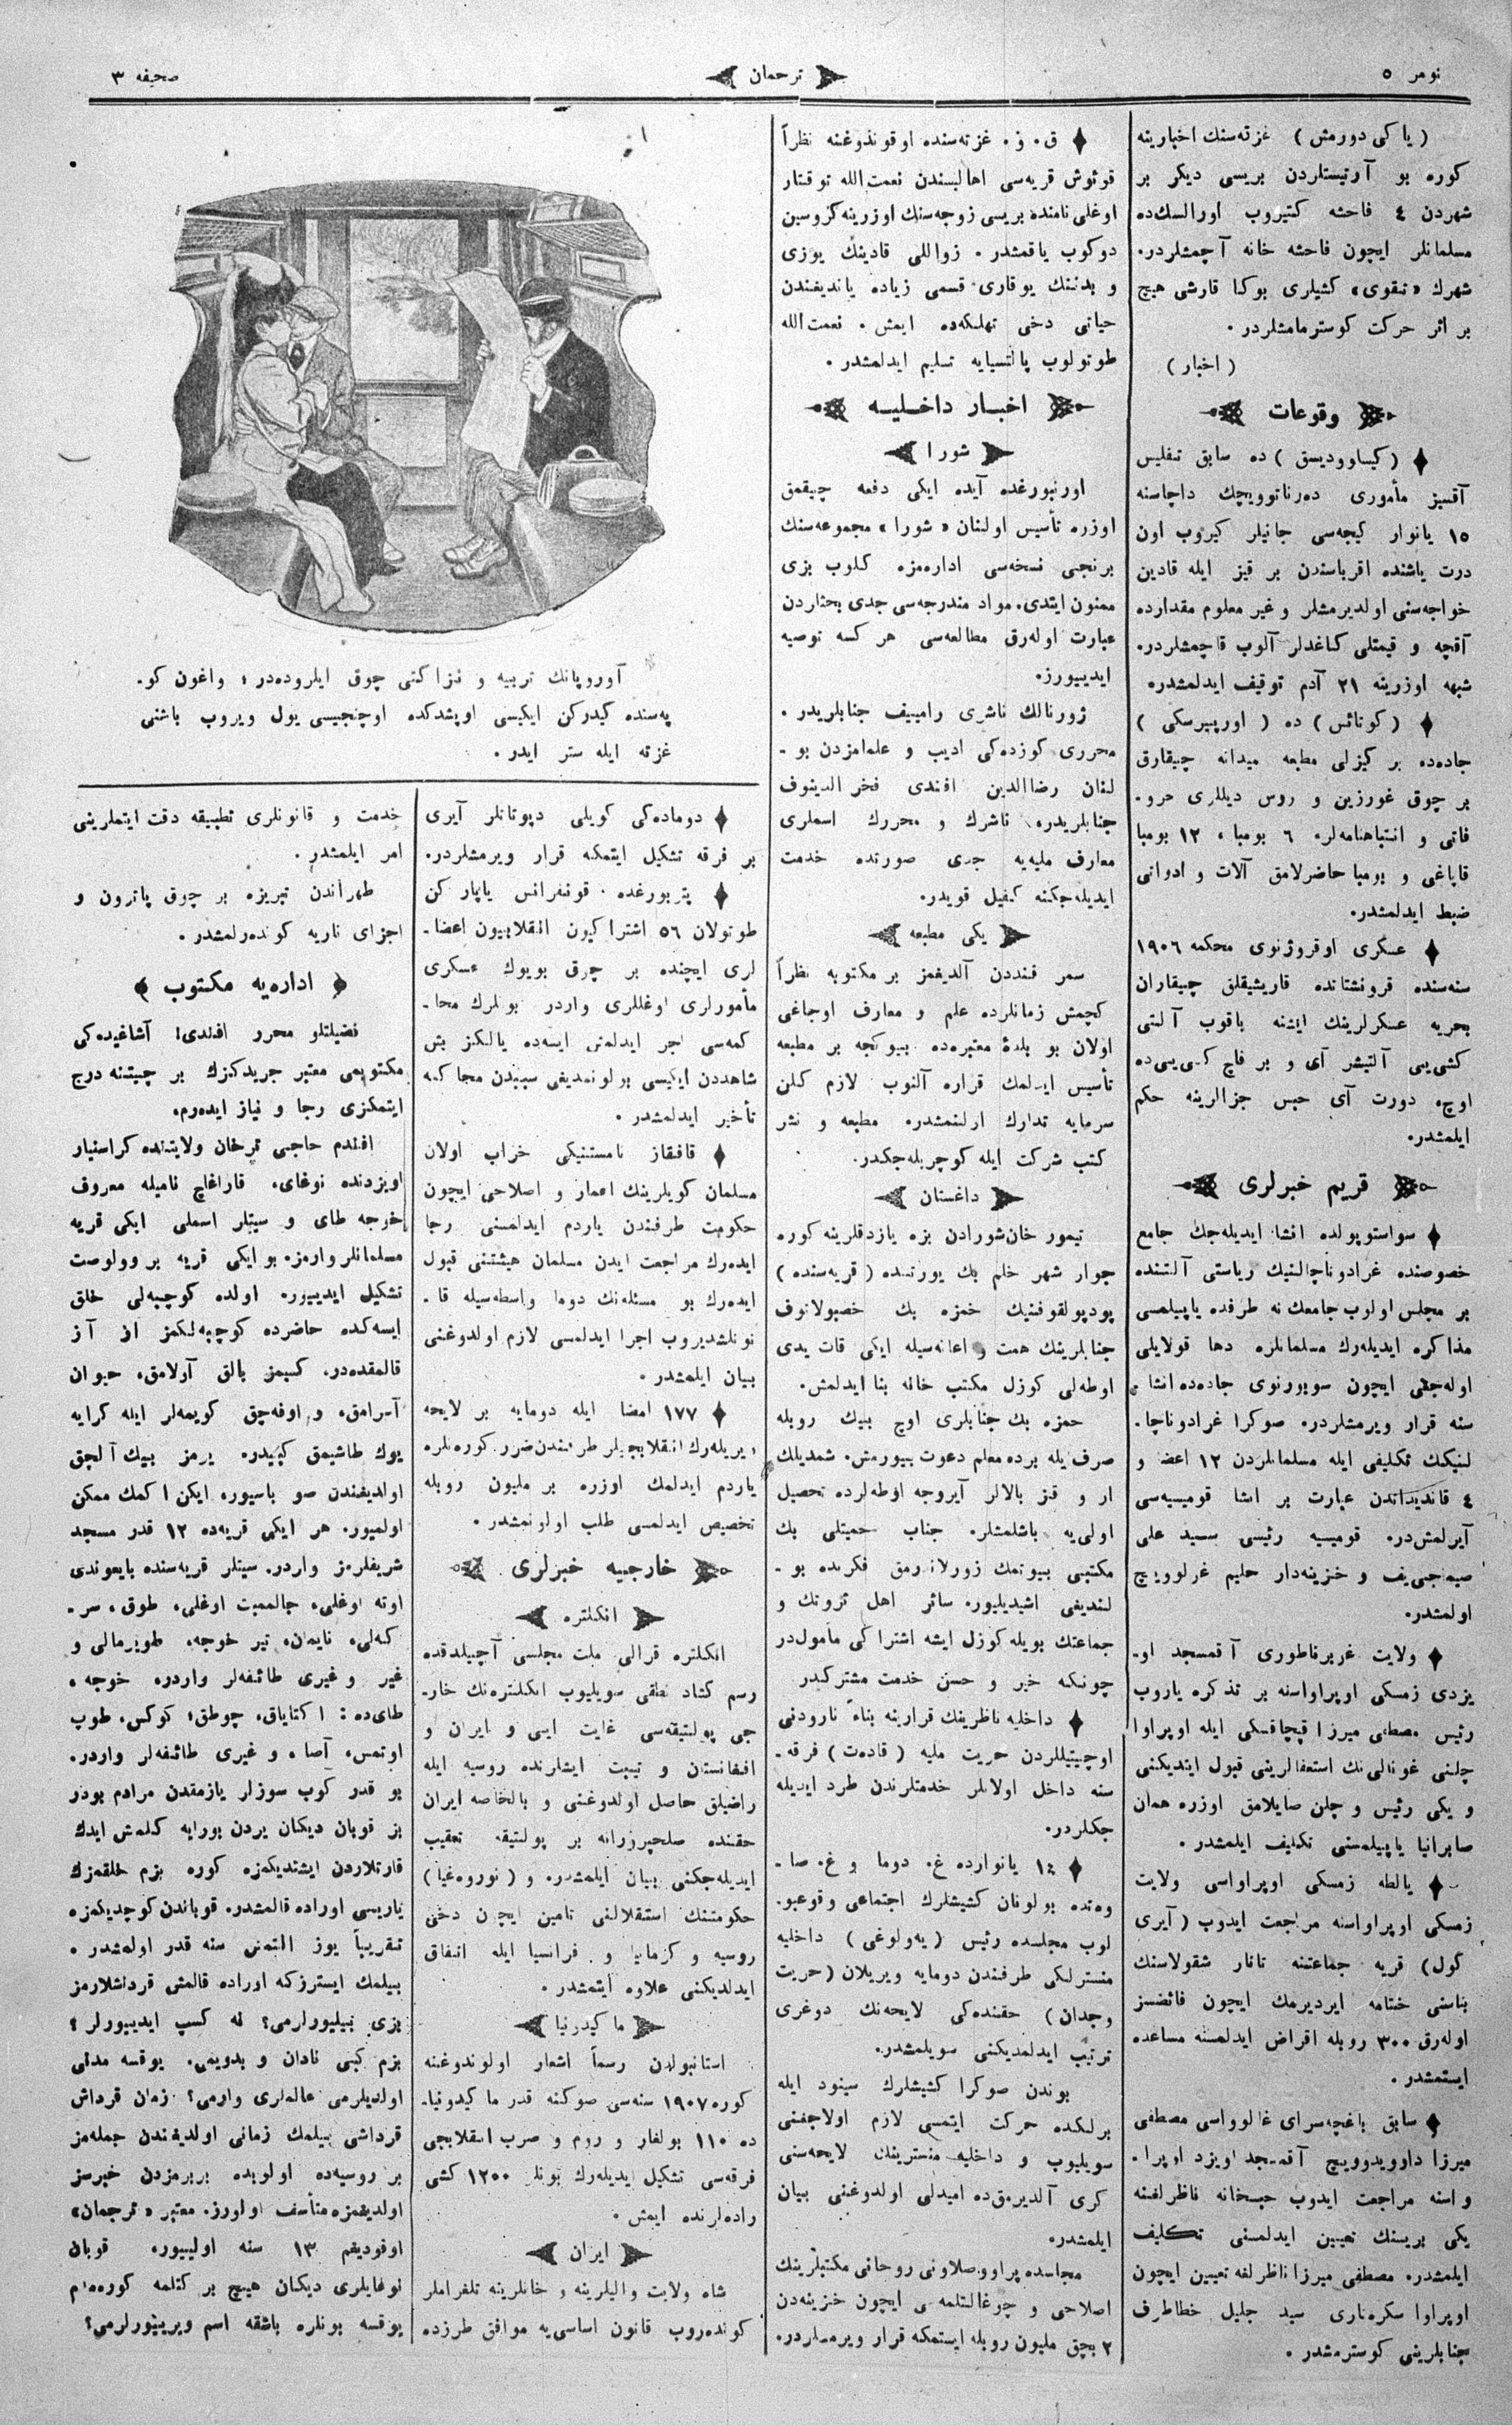 نومر ٥
ترجمان
صحیفه ٣
( یا کی دورمش ) غزته‌سنك اخبارینه
کوره بو آرتیستلردن بریسی دیکر بر
شهردن ٤ فاحشه کتیروب اورالسك‌ده
مسلمانلر ایچون فاحشه خانه آچمشلردر.
شهرك «تقوی» کشیلری بوکا قارشی هیچ
بر اثر حرکت کوسترمامشلردر.
( اخبار )
وقوعات
( کیساوودیسق ) ده سابق تفلیس
آقسیز مأموری ده‌رناتوویچك داچاسنه
١٥ یانوار کیجه‌سی جانیلر کیروب اون
درت یاشنده اقرباسندن بر قیز ایله قادین
خواجه‌سنی اولدیرمشلر و غیر معلوم مقدارده
آقچه و قیمتلی کاغدلر آلوب قاچمشلردر.
شبهه اوزرینه ٢١ آدم توقیف ایدلمشدر.
( کوتائس ) ده ( اورپیرسکی )
جاده‌ده بر کیزلی مطبعه میدانه چیقارق
بر چوق غورزین و روس دیللری حرو-
فاتی و انتباهنامه‌لر، ٦ بومبا، ١٢ بومبا
قاپاغی و بومبا حاضرلامق آلات و ادواتی
ضبط ایدلمشدر.
عسکری اوقروژنوی محکمه ١٩٠٦
سنه‌سنده قرونشتاتده قاریشیقلق چیقاران
بحریه عسکرلرینك ایشنه باقوب آلتی
کشی‌یی آلتیشر آی و بر قاچ کشی‌یی‌ده
اوچ، دورت آی حبس جزالرینه حکم
ایلمشدر.
قریم خبرلری
سواستوپولده انشا ایدیله‌جك جامع
خصوصنده غرادوناچالنیك ریاستی آلتنده
بر مجلس اولوب جامعك نه طرفده یاپیلمسی
مذاکره ایدیله‌رك مسلمانلره دها قولایلی
اوله‌جغی ایچون سوبورنوی جاده‌ده انشا
سنه قرار ویرمشلردر. صوکرا غرادوناچا-
لنیکك تکلیفی ایله مسلمانلردن ١٢ اعضا و
٤ قاندیداتدن عبارت بر انشا قومیسیه‌سی
آیرلمش‌در. قومیسیه رئیسی سید علی
صیماجی‌یف و خزینه‌دار حلیم غرلوویچ
اولمشدر.
ولایت غوبرناطوری آقمسجد او-
یزدی زمسکی اوپراواسنه بر تذکره یازوب
رئیس مصطفی میرزا قپچاقسکی ایله اوپراوا
چلنی غونالی‌نك استعفالرینی قبول ایتدیکنی
و یکی رئیس و چلن صایلامق اوزره همان
صابرانیا یاپیلمسنی تکلیف ایلمشدر.
یالطه زمسکی اوپراواسی ولایت
زمسکی اوپراواسنه مراجعت ایدوب ( آیری
کول ) قریه جماعتنه تاتار شقولاسنك
بناسنی ختامه ایردیرمك ایچون فائضسز
اوله‌رق ٣٠٠ روبله اقراض ایدلمسنه مساعده
ایستمشدر.
سابق باغچه‌سرای غالوواسی مصطفی
میرزا داوویدوویچ آقمسجد اویزد اوپرا-
واسنه مراجعت ایدوب حبسخانه ناظرلغنه
یکی بریسنك تعیین ایدلمسنی تکلیف
ایلمشدر. مصطفی میرزا ناظرلغه تعیین ایچون
اوپراوا سکره‌تاری سید جلیل خطاطرف
جنابلرینی کوسترمشدر.
ق. ز. غزته‌سنده اوقوندوغنه نظراً
قوتوش قریه‌سی اهالیسندن نعمت‌الله توقتار
اوغلی نامنده بریسی زوجه‌سنك اوزرینه کروسین
دوکوب یاقمشدر. زواللی قادینك یوزی
و بدننك یوقاری قسمی زیاده یاندیغندن
حیاتی دخی تهلکه‌ده ایمش. نعمت‌الله
طوتولوب پالتسیایه تسلیم ایدلمشدر.
اخبار داخلیه
شورا
اورنبورغده آیده ایکی دفعه چیقمق
اوزره تأسیس اولنان «شورا» مجموعه‌سنك
برنجی نسخه‌سی اداره‌مزه کلوب بزی
ممنون ایتدی. مواد مندرجه‌سی جدی بحثلردن
عبارت اوله‌رق مطالعه‌سی هر کسه توصیه
ایدییورز.
ژورنالك ناشری رامییف جنابلریدر.
محرری کوزده‌کی ادیب و علمامزدن بو-
لنان رضاالدین افندی فخرالدینوف
جنابلریدر. ناشرك و محررك اسملری
معارف ملیه‌یه جدی صورتده خدمت
ایدیله‌جکنه کفیل قویدر.
یکی مطبعه
سمرقنددن آلدیغمز بر مکتوبه نظراً
کچمش زمانلرده علم و معارف اوجاغی
اولان بو بلدۀ معتبره‌ده بیوکجه بر مطبعه
تأسیس ایدلمك قراره آلنوب لازم کلن
سرمایه تدارك اولنمشدر. مطبعه و نشر
کتب شرکت ایله کوچریله‌جکدر.
داغستان
تیمور خان‌شورادن بزه یازدقلرینه کوره
جوار شهر خلم بك یورتنده ( قریه‌سنده )
پودپولقوفنیك حمزه بك خصبولانوف
جنابلرینك همت و اعانه‌سیله ایکی قات یدی
اوطه‌لی کوزل مکتب خانه بنا ایدلمش.
حمزه بك جنابلری اوچ بیك روبله
صرف ایله برده معلم دعوت بیورمش. شمدیلك
ار و قز بالالر آیروجه اوطه‌لرده تحصیل
اولی‌یه باشلمشلر. جناب حمیتلی بك
مکتبی بیوتمك زورلاندرمق فکرنده بو-
لندیغی اشیدیلیور. سائر اهل ثروتك و
جماعتك بویله کوزل ایشه اشتراکی مأمول‌در
چونکه خیر و حسن خدمت مشترکیدر
داخلیه ناظرینك قرارینه بناءً نارودنی
اوچیتیللردن حریت ملیه ( قاده‌ت ) فرقه-
سنه داخل اولانلر خدمتلرندن طرد ایدیله
جکلردر.
یانوارده غ. دوما و غ. صا-
وه‌تده بولونان کشیشلرك اجتماعی وقوعبو-
لوب مجلسده رئیس ( یه‌ولوغی ) داخلیه
منسترلکی طرفندن دومایه ویریلان ( حریت
وجدان ) حقنده‌کی لایحه‌نك دوغری
ترتیب ایدلمدیکنی سویلمشدر.
بوندن صوکرا کشیشلرك سینود ایله
برلکده حرکت ایتمسی لازم اولاجغنی
سویلیوب و داخلیه منسترینك لایحه‌سنی
کری آلدیرمق‌ده امیدلی اولدوغنی بیان
ایلمشدر.
مجلسده پراووصلاونی روحانی مکتبلرینك
اصلاحی و چوغالتلمه‌سی ایچون خزینه‌دن
٢ بچق ملیون روبله ایستمکه قرار ویرمشلردر.
آوروپانك تربیه و نزاکتی چوق ایلروده‌در؛ واغون کو-
په‌سنده کیدرکن ایکیسی اوپشدکده اوچنجیسی یول ویروب باشنی
غزته ایله ستر ایدر.
دوماده‌کی کویلی دپوتاتلر آیری
بر فرقه تشکیل ایتمکه قرار ویرمشلردر.
پتربورغده قونفرانس یاپارکن
طوتولان ٥٦ اشتراکیون انقلابیون اعضا-
لری ایچنده بر چوق بویوك عسکری
مأمورلری اوغللری واردر. بونلرك محا-
کمه‌سی اجر ایدلمش ایسه‌ده یالکز بش
شاهددن ایکیسی بولونمدیغی سببدن محاکمه
تأخیر ایدلمشدر.
قافقاز نامستنیکی خراب اولان
مسلمان کویلرینك اعمار و اصلاحی ایچون
حکومت طرفندن یاردم ایدلمسنی رجا
ایده‌رك مراجعت ایدن مسلمان هیئتنی قبول
ایده‌رك بو مسئله‌نك دوما واسطه‌سیله قا-
نونلشدیروب اجرا ایدلمسی لازم اولدوغنی
بیان ایلمشدر.
١٧٧ امضا ایله دومایه بر لایحه
ویریله‌رك انقلابجیلر طرفندن ضرر کورەنلره
یاردم ایدلمك اوزره بر ملیون روبله
تخصیص ایدلمسی طلب اولونمشدر.
خارجیه خبرلری
انکلتره
انکلتره قرالی ملت مجلسی آچیلدقده
رسم کشاد نطقی سویلیوب انکلتره‌نك خار-
جی پولتیقه‌سی غایت ایی و ایران و
افغانستان و تیبت ایشلرنده روسیه ایله
راضیلق حاصل اولدوغنی و بالخاصه ایران
حقنده صلحپرورانه بر پولتیقه تعقیب
ایدیله‌جکنی بیان ایلمشدر. و ( نوروه‌غیا )
حکومتنك استقلالنی تامین ایچون دخی
روسیه و گرمانیا و فرانسیا ایله اتفاق
ایدلدیکنی علاوه ایتمشدر.
ماکیدونیا
استانبولدن رسماً اشعار اولوندوغنه
کوره ١٩٠٧ سنه‌سی صوکنه قدر ماکیدونیا-
ده ١١٠ بولغار و روم و صرب انقلابجی
فرقه‌سی تشکیل ایدیله‌رك بونلر ١٢٠٠ کشی
راده‌لرنده ایمش.
ایران
شاه ولایت والیلرینه و خانلرینه تلغرافلر
کونده‌روب قانون اساسی‌یه موافق طرزده
خدمت و قانونلری تطبیقه دقت ایتملرینی
امر ایلمشدر.
طهراندن تبریزه بر چوق پاترون و
اجزای ناریه کونده‌رلمشدر.
اداره‌یه مکتوب
فضیلتلو محرر افندی! آشاغیده‌کی
مکتوبمی معتبر جریدکزك بر چیتنه درج
ایتمکزی رجا و نیاز ایده‌رم.
افندم حاجی ترخان ولایتنده کراسنیار
اویزدنده نوغای، قاراغاچ نامیله معروف
خوجه طای و سیتلر اسملی ایکی قریه
مسلمانلر وارمز. بو ایکی قریه بر وولوست
تشکیل ایدییور. اولده کوچبه‌لی خلق
ایسه‌کده حاضرده کوچبه‌لکمز از آز
قالمقده‌در. کسبمز بالق آولامق، حیوان
آسرامق، و اوفه‌جق کویمه‌لر ایله کرایه
یوك طاشیمق کبیدر. یرمز بیك آلچق
اولدیغندن صو باسیور. ایکن اکمك ممکن
اولمیور. هر ایکی قریه‌ده ١٢ قدر مسجد
شریفلرمز واردر. سیتلر قریه‌سنده بایعوندی
اوته اوغلی، جالممبت اوغلی، طوق، سر-
کەلی، نایمان، تیر خوجه، طوبرمالی و
غیر و غیری طائفه‌لر واردر. خوجه
طای‌ده: اکتایاق، چوطق؛ کوکس، طوب
اوتمس، آصا، و غیری طائفه‌لر واردر.
بو قدر کوب سوزلر یازمقدن مرادم بودر
بز قوبان دیکان یردن بورایه کلمش ایدك
قارتلاردن ایشتدیکمزه کوره بزم خلقمزك
یاریسی اوراده قالمشدر. قوباندن کوچدیکمزه
تقریباً یوز التمش سنه قدر اولمشدر.
بیلمك ایسترزکه اوراده قالمش قرداشلارمز
بزی بیلیورلرمی؟ نه کسب ایدییورلر؟
بزم کبی نادان و بدویمی، یوقسه مدنی
اولدیلرمی عالملری وارمی؟ زمان قرداش
قرداشی بیلمك زمانی اولدیغندن جمله‌مز
بر روسیه‌ده اولوبده بربرمزدن خبرسز
اولدیغمزه متأسف اولورز. معتبر «ترجمان»
اوقودیغم ١٣ سنه اولییور. قوبان
نوغایلری دیکان هیچ بر کلمه کورمه‌دم
یوقسه بونلره باشقه اسم ویریلیورلرمی؟